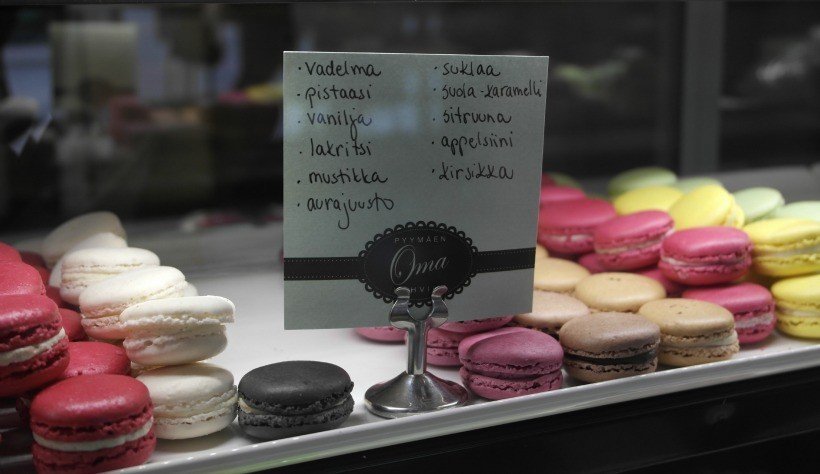 · vadelma
· pistaasi
· vanilja
· lakritsi
· mustikka
· aurajuusto
· suklaa
· suola-karamelli
· sitruuna
· appelsiini
· kirsikka
PYYMÄEN
Oma